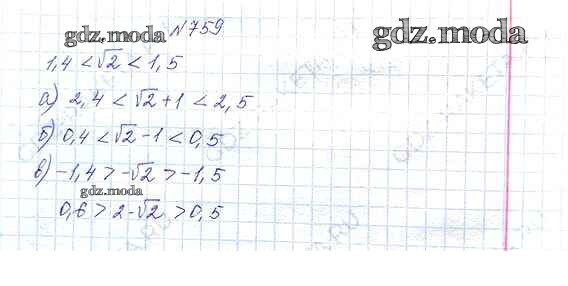 gdz.moda №759 gdz.moda
1,4 < √2 < 1,5
а) 2,4 < √2 + 1 < 2,5
б) 0,4 < √2 - 1 < 0,5
в) -1,4 > -√2 > -1,5
gdz.moda
0,6 > 2 - √2 > 0,5